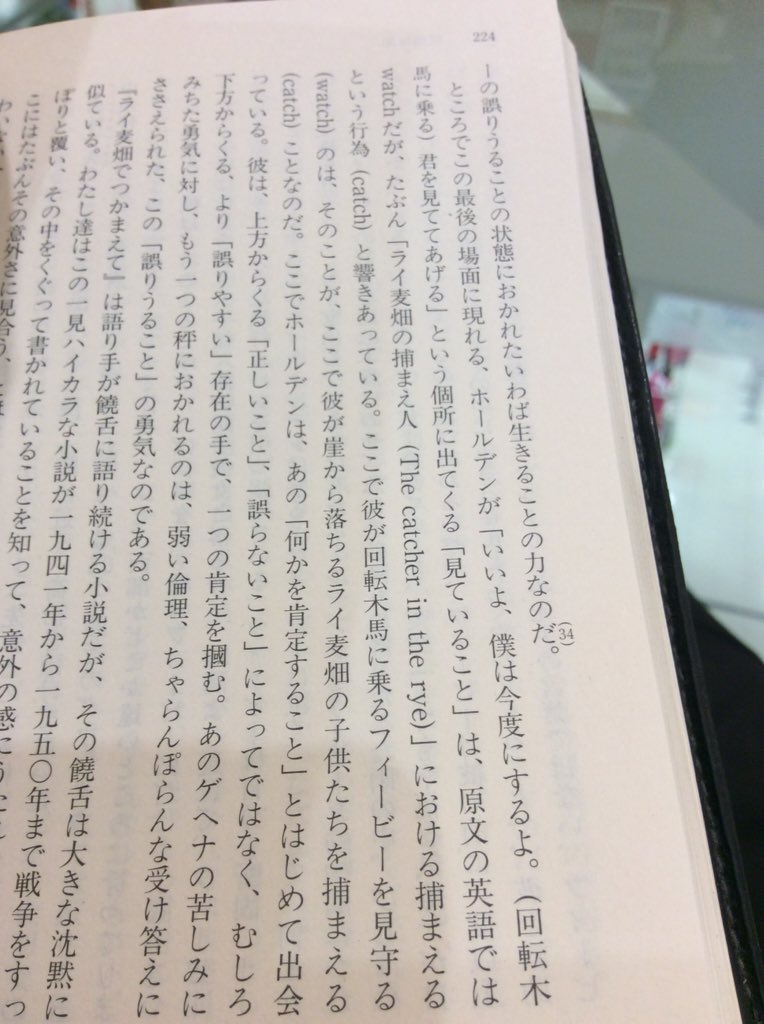 224
ーの誤りうることの状態におかれたいわば生きることの力なのだ。(34)
ところでこの最後の場面に現れる、ホールデンが「いいよ、僕は今度にするよ。(回転木
馬に乗る)君を見ててあげる」という個所に出てくる「見ていること」は、原文の英語では
watchだが、たぶん「ライ麦畑の捕まえ人(The catcher in the rye)」における捕まえる
という行為(catch)と響きあっている。ここで彼が回転木馬に乗るフィービーを見守る
(watch)のは、そのことが、ここで彼が崖から落ちるライ麦畑の子供たちを捕まえる
(catch)ことなのだ。ここでホールデンは、あの「何かを肯定すること」とはじめて出会
っている。彼は、上方からくる「正しいこと」、「誤らないこと」によってではなく、むしろ
下方からくる、より「誤りやすい」存在の手で、一つの肯定を摑む。あのゲヘナの苦しみに
みちた勇気に対し、もう一つの秤におかれるのは、弱い倫理、ちゃらんぽらんな受け答えに
ささえられた、この「誤りうること」の勇気なのである。
『ライ麦畑でつかまえて』は語り手が饒舌に語り続ける小説だが、その饒舌は大きな沈黙に
似ている。わたし達はこの一見ハイカラな小説が一九四一年から一九五〇年まで戦争をすっ
ぽりと覆い、その中をくぐって書かれていることを知って、意外の感に
こにはたぶんその意外さに見合う、